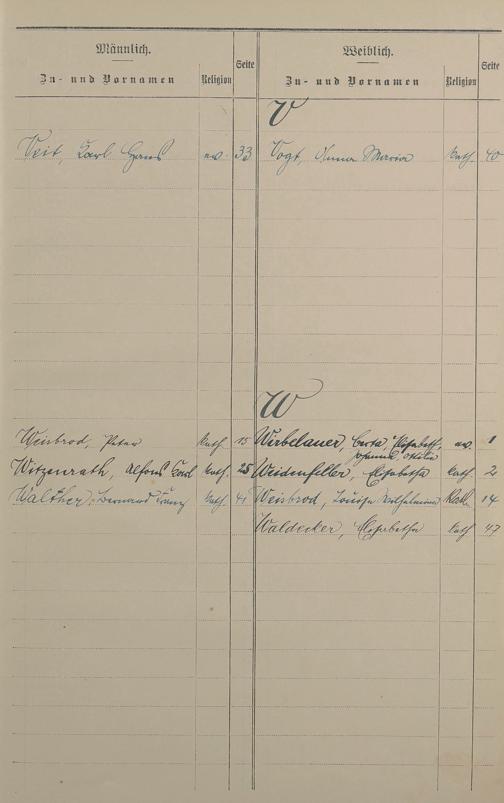 Männlich. Weiblich.
Zu- und Vornamen Religion Seite Zu- und Vornamen Religion Seite
V
Veit, Karl Hans ev. 33 Vogt, Anna Maria kath. 40
W
Weisbrod, Peter kath. 15 Wirbelauer, Berta Elisabeth, ev. 1
Johanna
Witzenrath, Alfons Karl kath. 25 Weidenfeller, Elisabetha kath. 2
Walther, Bernard Franz kath. 41 Weisbrod, Louise Wilhelmine Kath. 14
Waldecker, Elisabetha kath 47